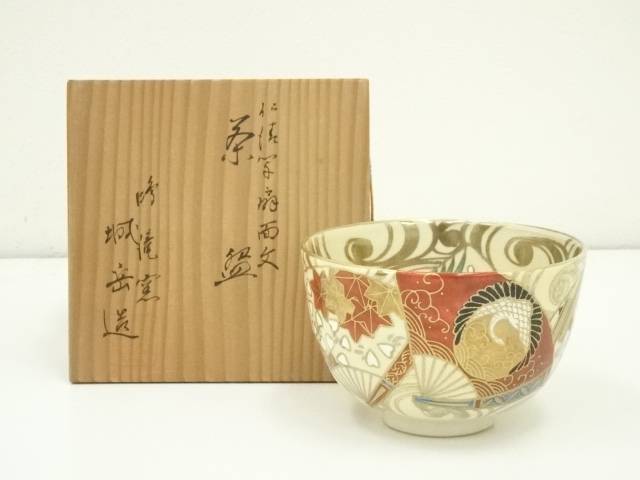 仁清写扇面文
茶盌
鳴滝窯
城岳造